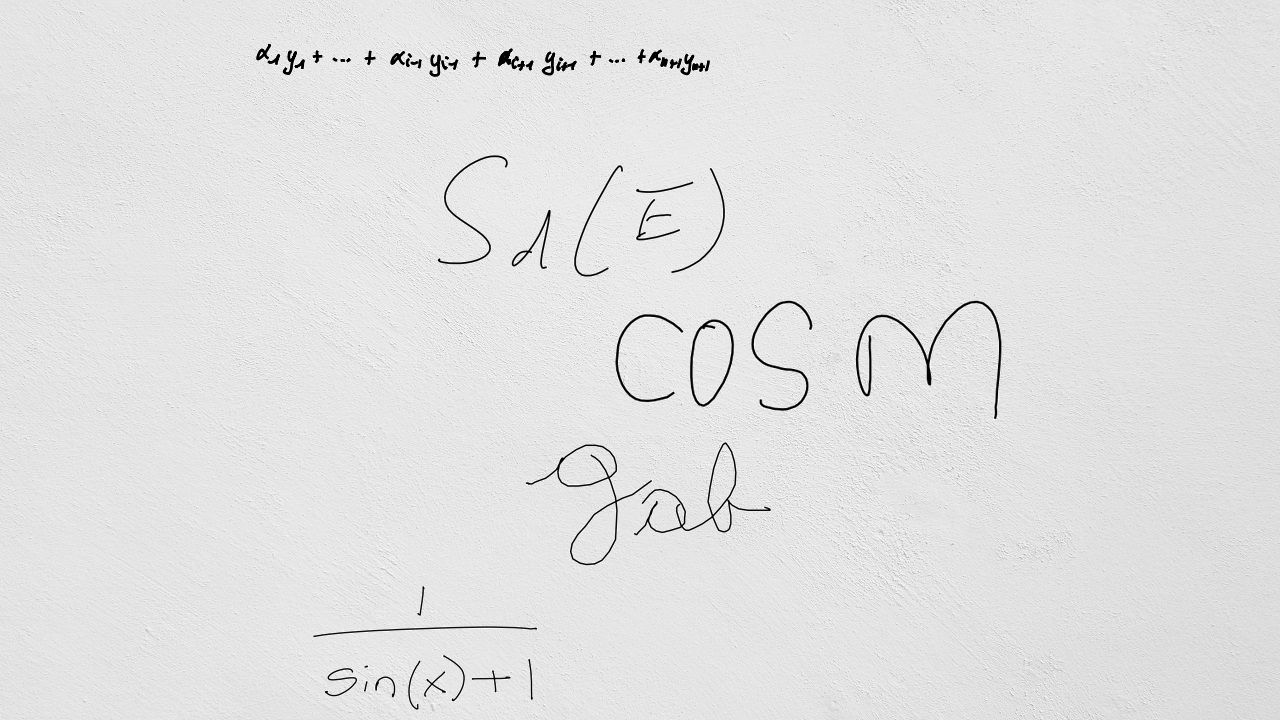 α₁y₁ + ... + αᵢ₋₁ yᵢ₋₁ + αᵢ₊₁ yᵢ₊₁ + ... + αₙ₊₁yₙ₊₁
S₁(E)
cos m
g_ab
1
sin(x)+1